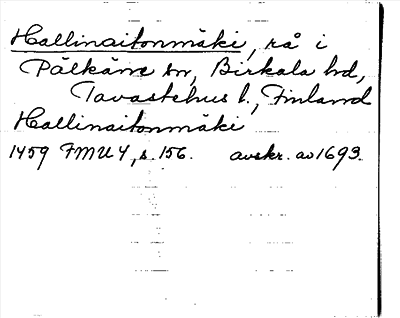 Hallinaitonmäki, rå i
Pälkäne sn, Birkala hd,
Tavastehus l., Finland
Hallinaitonmäki
1459 FMU 4, s. 156. avskr. av 1693.